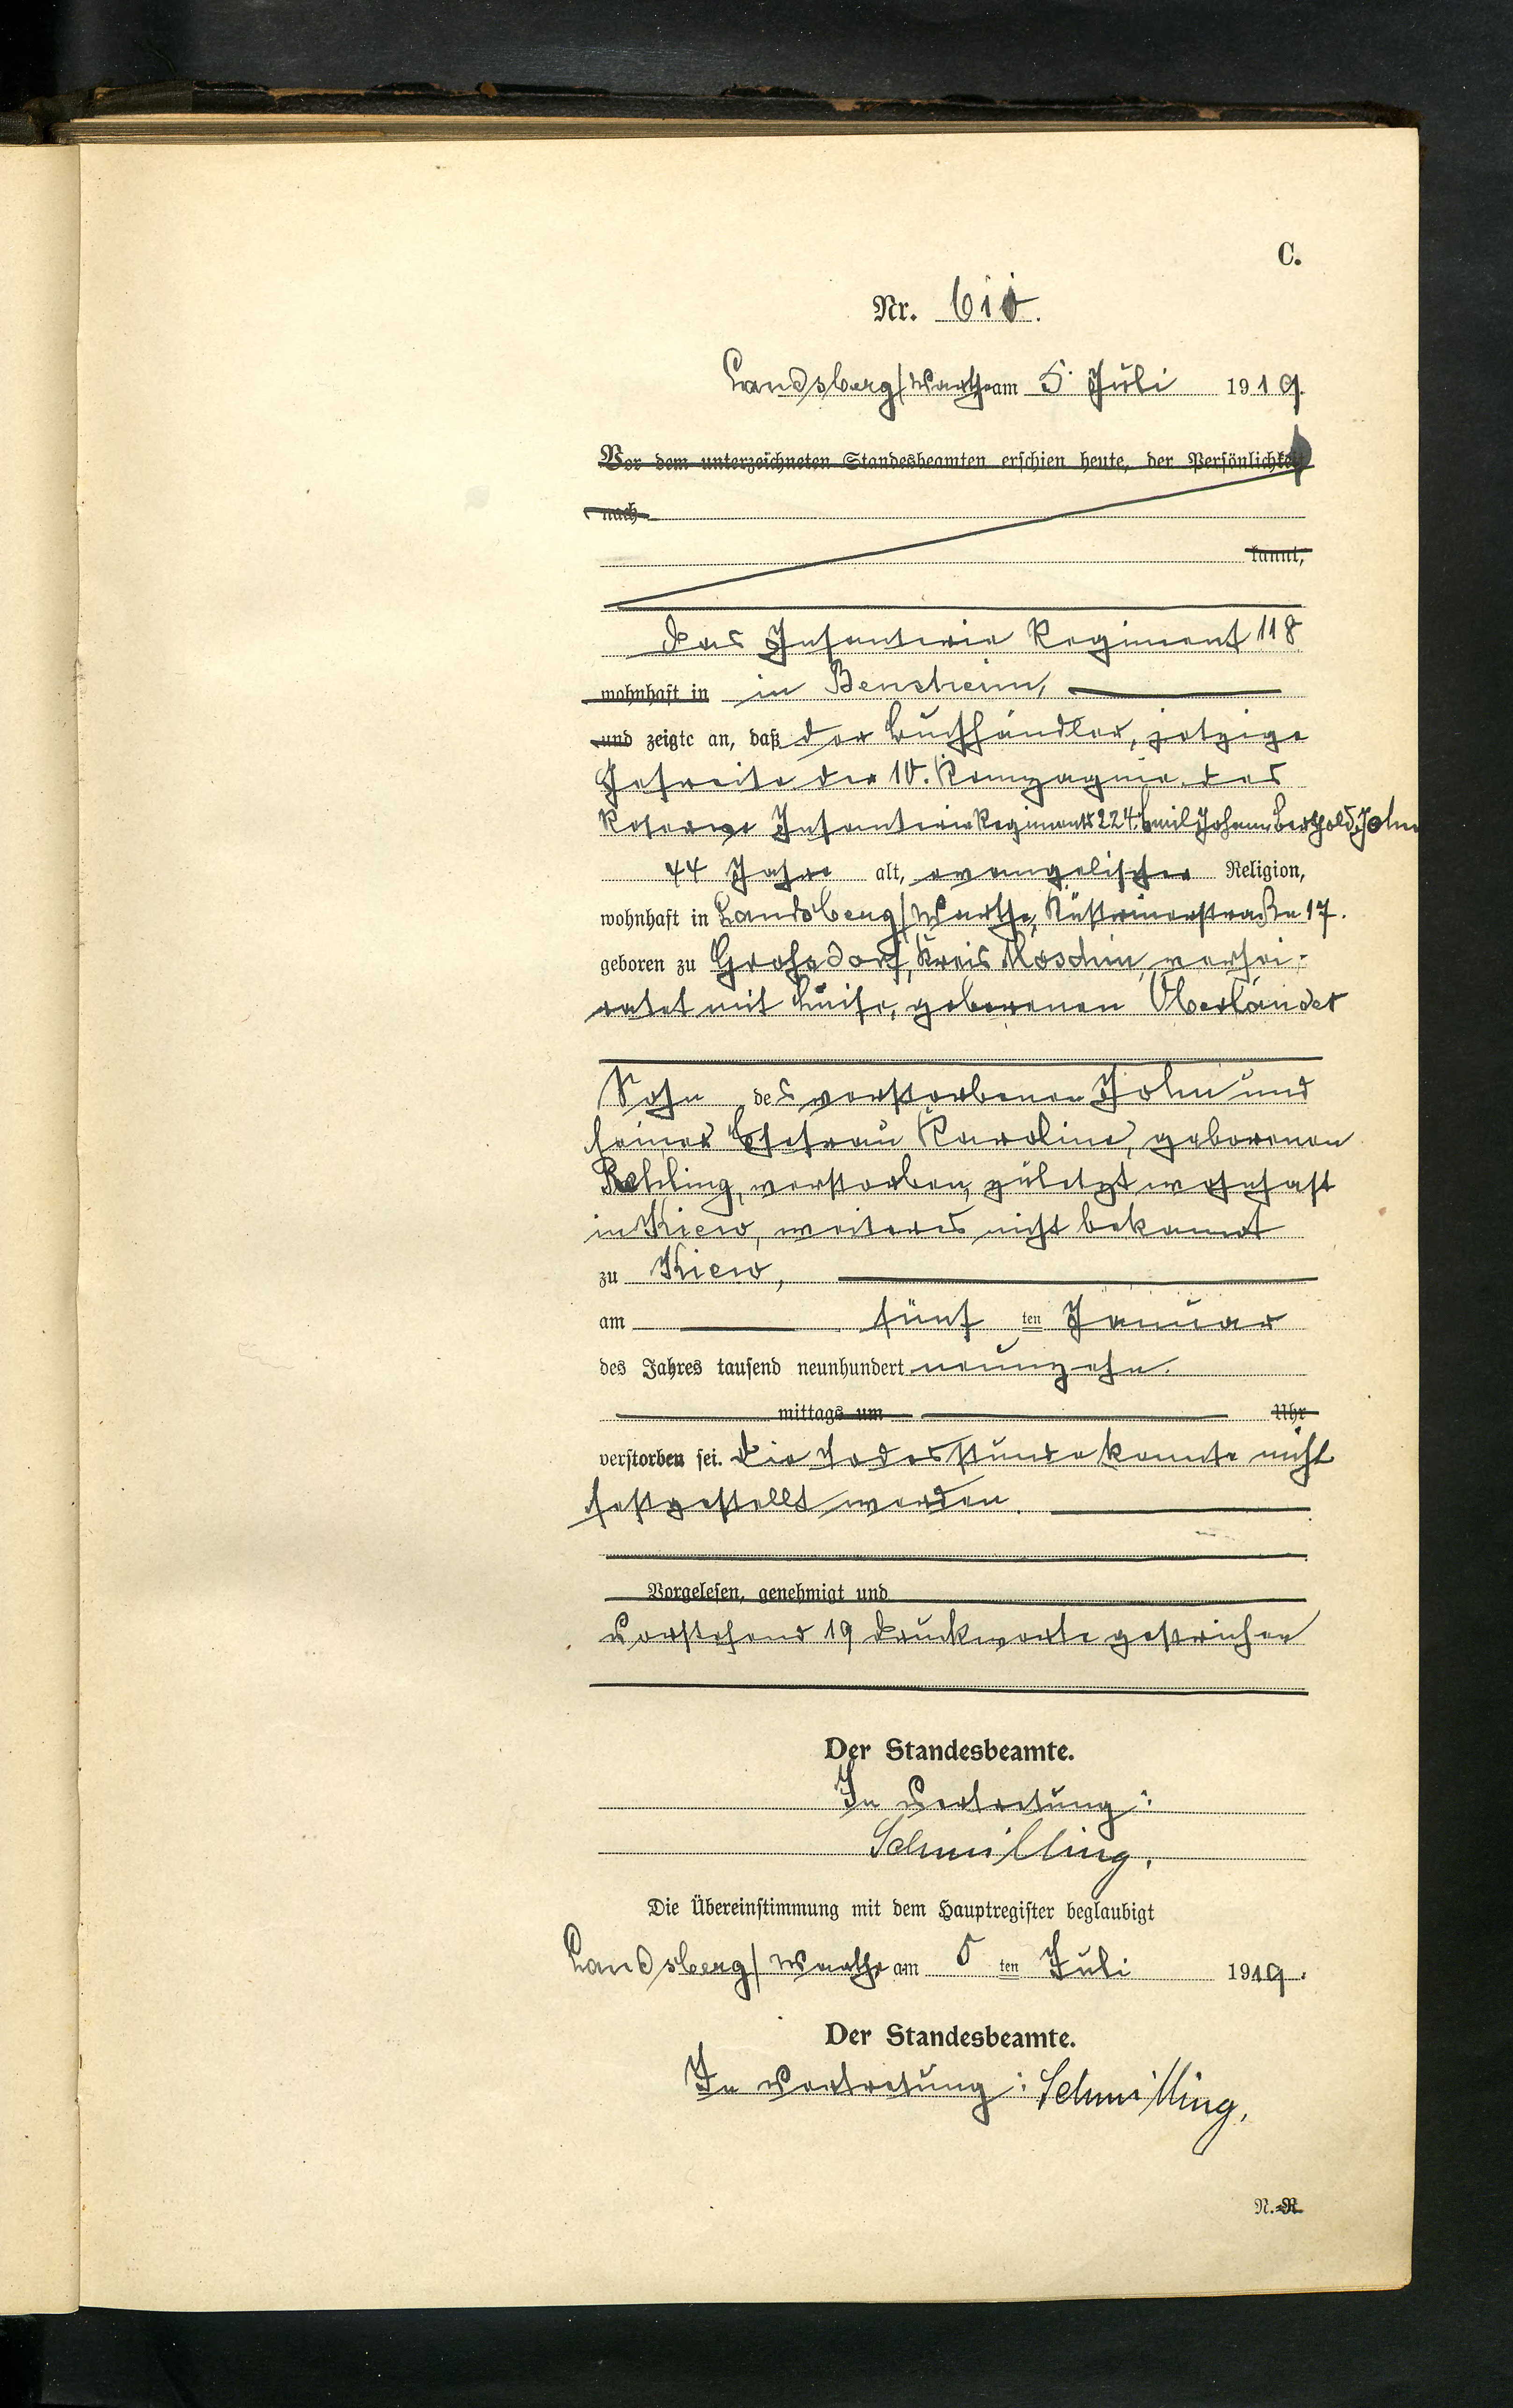 C.
Nr. 610.
Landsberg/Warthe am 5. Juli 1919.
Vor dem unterzeichneten Standesbeamten erschien heute, der Persönlichkeit
nach
kannt,
Das Infanterie Regiment 118
wohnhaft in in Bensheim,
und zeigte an, daß der Buchhändler, jetzige
Gefreite der 10. Kompagnie des
Reserve Infanterie Regiments 224 Emil Johann Berthold John
44 Jahre alt, evangelischer Religion,
wohnhaft in Landsberg/Warthe, Küstrinerstraße 17.
geboren zu Grofsdorf, Kreis Moschin, verhei-
ratet mit Luise, geborenen Oberländer
Sohn des verstorbenen John und
seiner Ehefrau Karoline, geborenen
verstorben, zuletzt wohnhaft
in Kiew, weiteres nicht bekannt
zu Kiew,
am fünf ten Januar
des Jahres tausend neunhundert neunzehn.
mittags um Uhr
verstorben sei. Die Todesstunde konnte nicht
festgestellt werden.
Vorgelesen, genehmigt und
Vorstehend 19 Druckworte gestrichen
Der Standesbeamte.
In Vertretung:
Schmilling.
Die Übereinstimmung mit dem Hauptregister beglaubigt
Landsberg/Warthe am 5 ten Juli 1919.
Der Standesbeamte.
In Vertretung: Schmilling.
N.-R.